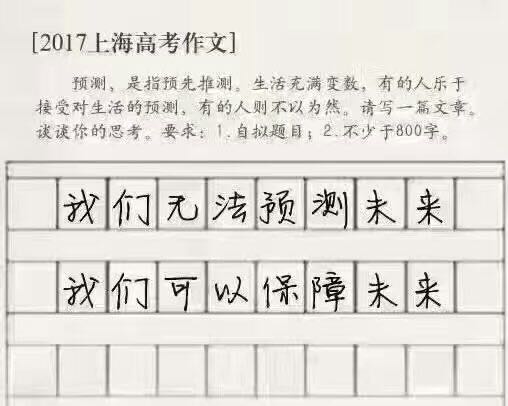 [2017上海高考作文]
预测，是指预先推测。生活充满变数，有的人乐于
接受对生活的预测，有的人则不以为然。请写一篇文章。
谈谈你的思考。要求：1.自拟题目；2.不少于800字。
我们无法预测未来
我们可以保障未来